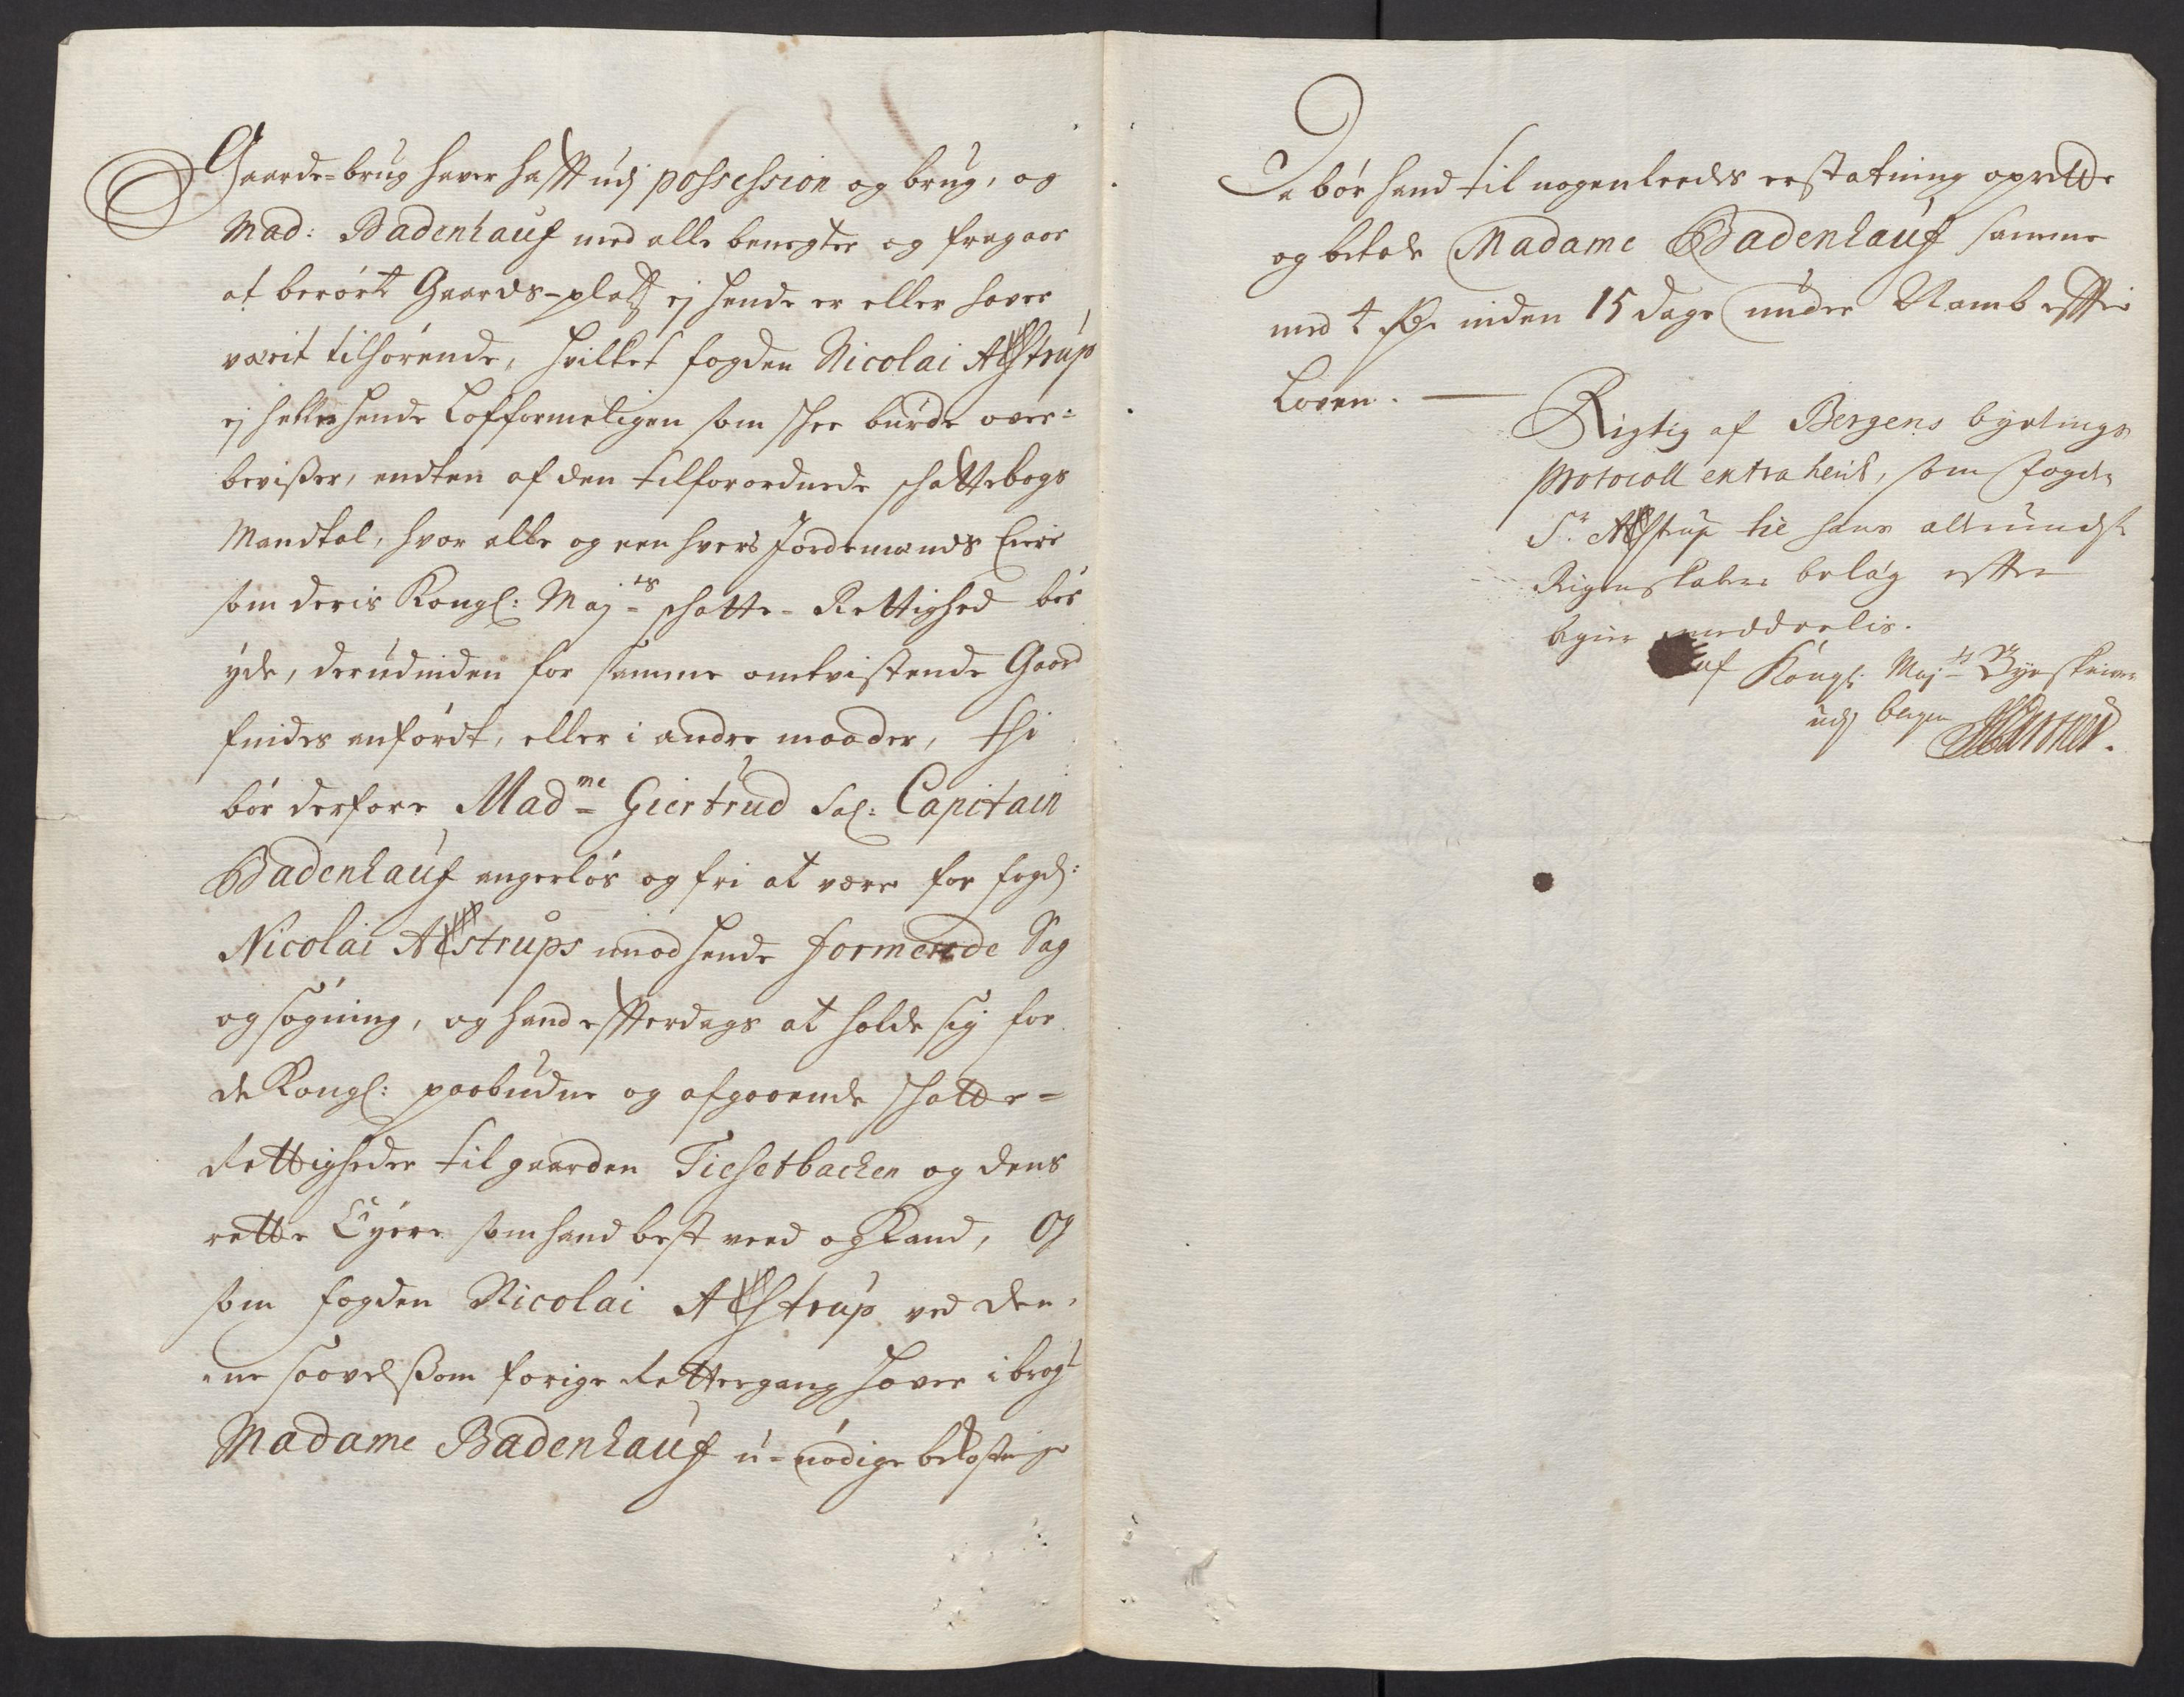 Gaarde-brug haver hafft udj possession og brug, og
Mad: Badenhauf med alle benegter og fragaar
at berørte Gaards-platz ej hende er eller haver
værit tilhørende, hvilket fogden Nicolai Astrup
ej heller hende Lofformeligen som skee burde over-
beviser, endten af den tilforordnede schattebogs
Mandtal, hvor alle og een hvers Jordemands
som deris Kongl: Maj=ts schatte-Rettighed bør
yde, derudinden for samme omtvistende Gaard
findes anført, eller i andre maader, thi
bør derfore Mad=me Giertrud Sal: Capitain
Badenhauf angerløs og fri at være for fogd:
Nicolai Astrups imod hende formerede Sag
og søgning, og hand effterdags at holde sig for
de Kongl: paabudne og afgaaende schatte-
Rettigheder til gaarden Tiesetbachen og dens
rette Eyere som hand best veed og Kand, og
som fogden Nicolai Astrup ved den-
ne saavelsom forige Rettergang haver ibragt
Madame Badenhauf u-nødige bekostninge
Da bør hand til nogenleedes erstatning oprette
og betale Madame Badenhauf samme
med 4 Rdr inden 15 dage under Namb effter
Loven.
Rigtig af Bergens byetings
Protocoll extraherit, som fogden
Sr Astrup til hans allerund:
Rigenskabers belag effter
begier meddeelis.
af Kongl: Maj=ts Byeskriver
udj Bergen